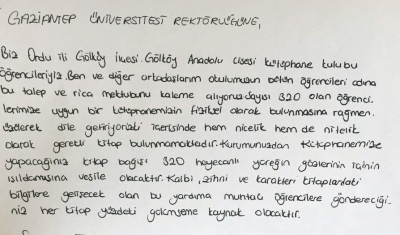 GAZİANTEP ÜNİVERSİTESİ REKTÖRLÜĞÜNE,
Biz Ordu ili Gölköy ilçesi Gölköy Anadolu Lisesi kütüphane kulübü
öğrencileriyiz. Ben ve diğer arkadaşlarım okulumuzun bütün öğrencileri adına
bu talep ve rica mektubunu kaleme alıyoruz. Sayısı 320 olan öğrenci
lerimize uygun bir kütüphanemizin fiziksel olarak bulunmasına rağmen.
üzülerek dile getiriyoruz içerisinde hem nicelik hem de nitelik
olarak gerekli kitap bulunmamaktadır. Kurumunuzdan kütüphanemize
yapacağınız kitap bağışı 320 heyecanlı yüreğin gözlerinin içinin
ışıldamasına vesile olacaktır. Kalbi, zihni ve karakteri kitaplardaki
bilgilere gelişecek olan bu yardıma muhtaç öğrencilere göndereceği
niz her kitap yüzdeki gülümseme kaynak olacaktır.